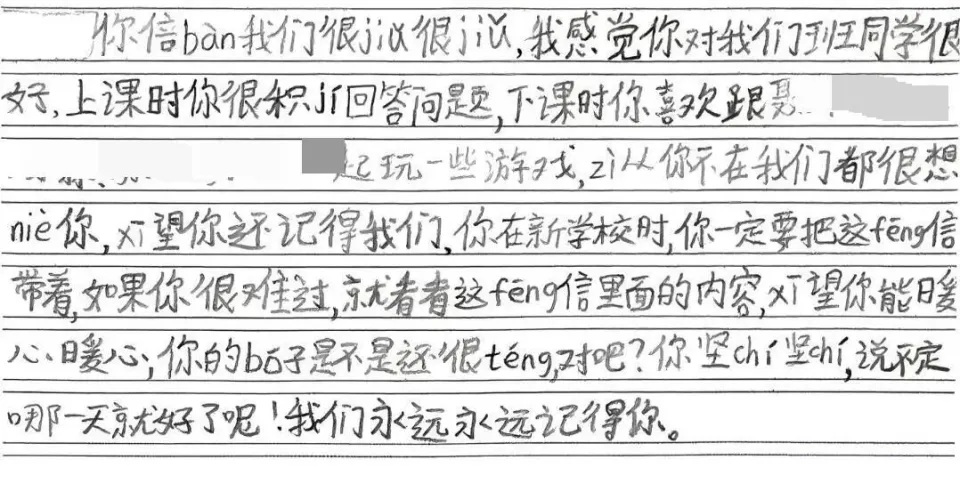 你倍bàn我们很jiǔ很jiǔ,我感觉你对我们班同学很
好,上课时你很积jí回答问题,下课时你喜欢跟聂
起玩一些游戏,zì从你不在我们都很想
niè你,xī望你还记得我们,你在新学校时,你一定要把这fēng信
带着,如果你很难过,就看看这fēng信里面的内容,xī望你能暖
心暖心;你的bó子是不是还很téng,对吧?你坚chí坚chí,说不定
哪一天就好了呢!我们永远永远记得你。